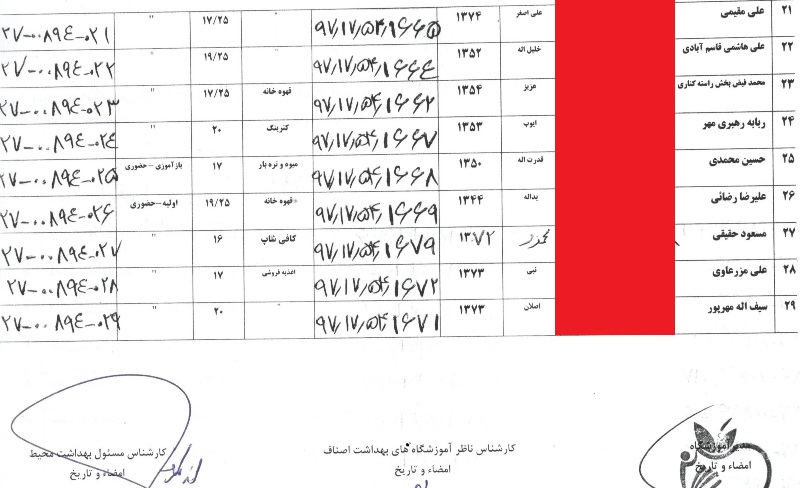 ۲۱ علی مقیمی علی اصغر ۱۳۷۴ ۹۷٫۱۷٫۵۴٫۱۶۶۵ " ۱۷/۲۵ " ۲۷-۰۰۸۹۴-۰۲۱
۲۲ علی هاشمی قاسم آبادی خلیل اله ۱۳۵۲ ۹۷٫۱۷٫۵۴٫۱۶۶۴ " ۱۹/۲۵ " ۲۷-۰۰۸۹۴-۰۲۲
۲۳ محمد فیض بخش راسته کناری عزیز ۱۳۵۴ ۹۷٫۱۷٫۵۴٫۱۶۶۲ قهوه خانه ۱۷/۲۵ " ۲۷-۰۰۸۹۴-۰۲۳
۲۴ ربابه رهبری مهر ایوب ۱۳۵۳ ۹۷٫۱۷٫۵۴٫۱۶۶۷ کترینگ ۲۰ " ۲۷-۰۰۸۹۴-۰۲۴
۲۵ حسین محمدی قدرت اله ۱۳۵۰ ۹۷٫۱۷٫۵۴٫۱۶۶۸ میوه و تره بار ۱۷ بازآموزی-حضوری ۲۷-۰۰۸۹۴-۰۲۵
۲۶ علیرضا رضائی یداله ۱۳۴۴ ۹۷٫۱۷٫۵۴٫۱۶۶۹ قهوه خانه ۱۹/۲۵ اولیه-حضوری ۲۷-۰۰۸۹۴-۰۲۶
۲۷ مسعود حقیقی ۱۳۷۲ ۹۷٫۱۷٫۵۴٫۱۶۷۹ کافی شاپ ۱۶ " ۲۷-۰۰۸۹۴-۰۲۷
۲۸ علی مزرعاوی نبی ۱۳۷۳ ۹۷٫۱۷٫۵۴٫۱۶۷۲ اغذیه فروشی ۱۷ " ۲۷-۰۰۸۹۴-۰۲۸
۲۹ سیف اله مهرپور اصلان ۱۳۷۳ ۹۷٫۱۷٫۵۴٫۱۶۷۱ " ۲۰ " ۲۷-۰۰۸۹۴-۰۲۹
مدیر آموزشگاه کارشناس ناظر آموزشگاه های بهداشت اصناف کارشناس مسئول بهداشت محیط
امضاء و تاریخ امضاء و تاریخ امضاء و تاریخ